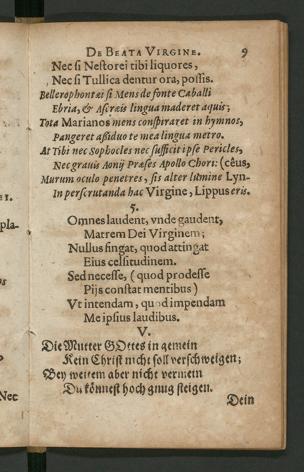 DE BEATA VIRGINE. 9
Nec si Nestorei tibi liquores,
Nec si Tullica dentur ora, possis.
Bellerophontæi si Mens de fonte Caballi
Ebria, & Ascræis lingua maderet aquis;
Tota Marianos mens conspiraret in hymnos,
Pangeret assiduo te mea lingua metro.
At Tibi nec Sophocles nec sufficit ipse Pericles,
Nec grauis Aonij Præses Apollo Chori: (cêus,
Murum oculo penetres, sis alter lumine Lyn-
In perscrutanda hac Virgine, Lippus eris.
5.
Omnes laudent, vnde gaudent,
Matrem Dei Virginem;
Nullus fingat, quod attingat
Eius celsitudinem.
Sed necesse, (quod prodesse
Pijs constat mentibus)
Vt intendam, quod impendam
Me ipsius laudibus.
V.
Die Mutter GOttes in gemein
Kein Christ nicht soll verschweigen;
Bey weitem aber nicht vermein
Du könnest hoch gnug steigen.
Dein